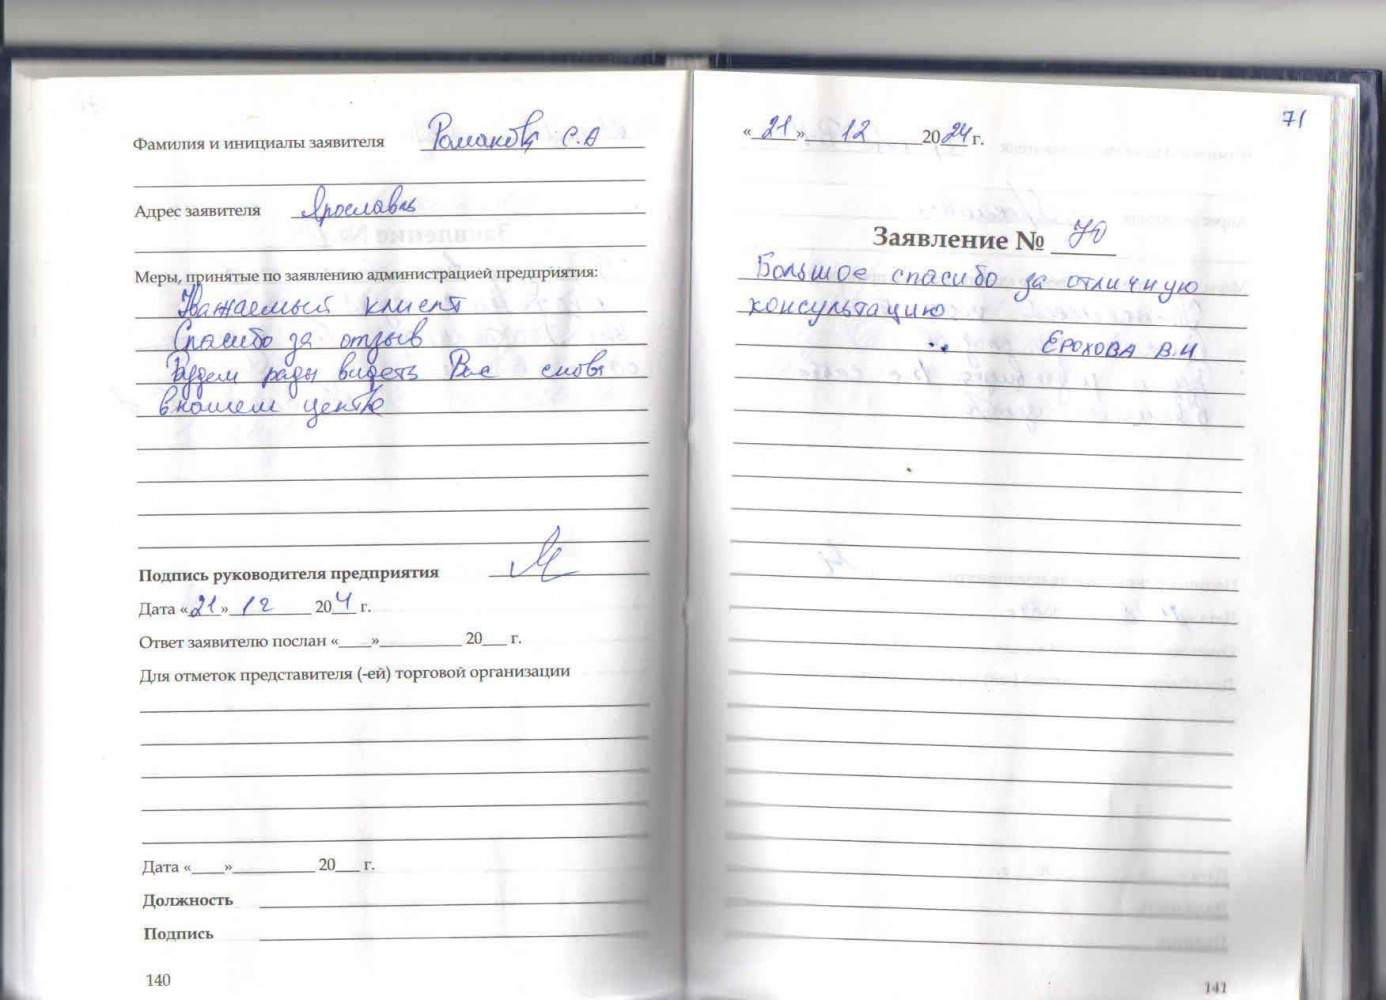 Фамилия и инициалы заявителя Романова С.А
Адрес заявителя Ярославль
Меры, принятые по заявлению администрацией предприятия:
Уважаемый клиент
Спасибо за отзыв
Будем рады видеть Вас снова
в нашем центре
Подпись руководителя предприятия
Дата «21» 12 204 г.
Ответ заявителю послан «____»__________ 20___ г.
Для отметок представителя (-ей) торговой организации
Дата «____»__________ 20___ г.
Должность
Подпись
140
71
«21» 12 2024 г.
Заявление № 70
Большое спасибо за отличную
консультацию
ЕРОХОВА В.И
141